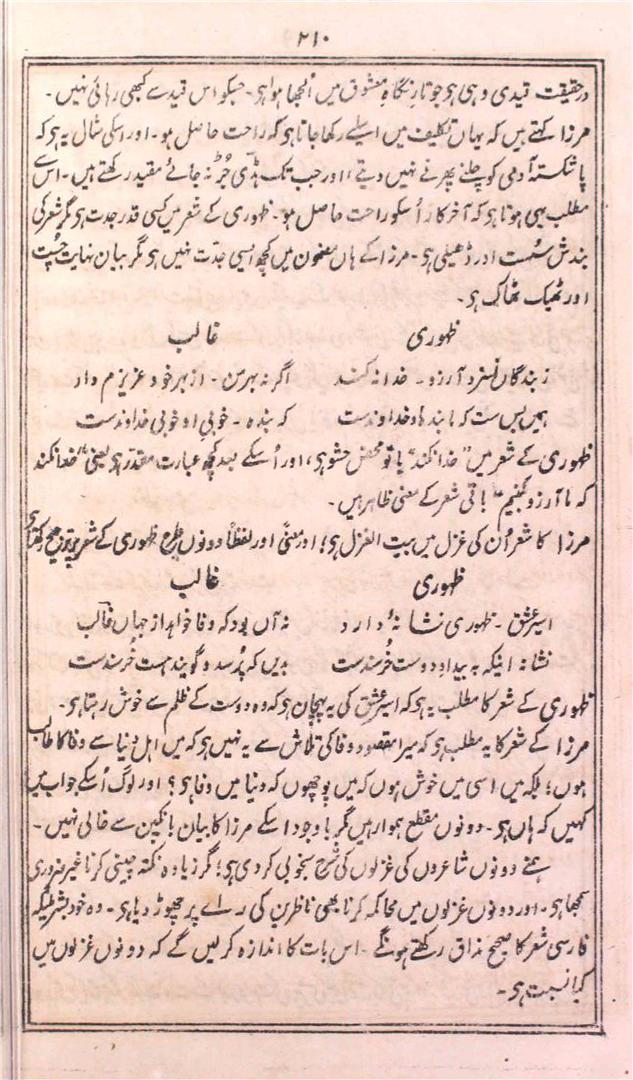 ۲۱۰
درحقیقت قیدی وہی ہو جو تارِ نگاہِ معشوق میں اُلجھا ہوا ہو۔ جسکو اس قید سے کبھی رہائی نہیں۔
مرزا کہتے ہیں کہ یہاں تکلیف میں اسلیے رکھا جاتا ہو کہ راحت حاصل ہو۔ اور اسکی مثال یہ ہو کہ
پا شکستہ آدمی کو چلنے پھرنے نہیں دیتے، اور جب تک ہڈی جُڑ نہ جائے مقید رکھتے ہیں۔ اس سے
مطلب یہی ہوتا ہو کہ آخر کار اُسکو راحت حاصل ہو۔ ظہوری کے شعر میں کسی قدر جدت ہو مگر شعر کی
بندش سُست اور ڈھیلی ہو۔ مرزا کے ہاں مضمون میں کچھ ایسی جدّت نہیں ہو مگر بیان نہایت چُست
اور ٹھیک ٹھاک ہو۔
ظہوری غالب
ز بندگان نسزد آرزو۔ خدا نہ کند اگر نہ بہرِ من۔ از بہرِ خود عزیزم دار
ہمیں بس ست کہ ما بندہ و خداوندست کہ بندہ۔ خوبیِ او خوبیِ خداوندست
ظہوری کے شعر میں "خدا نکند" یا تو محض حشو ہو، اور اُسکے بعد کچھ عبارت مقدر ہو یعنی "خدا نکند
کہ ما آرزو کنیم" باقی شعر کے معنی ظاہر ہیں۔
مرزا کا شعر اُن کی غزل میں بیت الغزل ہو؛ اور معنًی اور لفظاً دونوں طرح ظہوری کے شعر پر ترجیح رکھتا ہو
ظہوری غالب
اسیرِ عشق۔ ظہوری نشانۂ دارد نہ آں بود کہ وفا خواہد از جہاں غالب
نشانہ اینکہ بہ بیدادِ دوست خُرسندست بدیں کہ پُرسد و گویند ہست خُرسندست
ظہوری کے شعر کا مطلب یہ ہو کہ اسیرِ عشق کی یہ پہچان ہو کہ وہ دوست کے ظلم سے خوش رہتا ہو۔
مرزا کے شعر کا یہ مطلب ہو کہ میرا مقصود وفا کی تلاش سے یہ نہیں ہو کہ میں اہلِ دنیا سے وفا کا طالب
ہوں؛ بلکہ میں اسی میں خوش ہوں کہ میں پوچھوں کہ دنیا میں وفا ہو؟ اور لوگ اُسکے جواب میں
کہیں کہ ہاں ہو۔ دونوں مقطع ہموار ہیں مگر باوجود اسکے مرزا کا بیان بانکپن سے خالی نہیں۔
ہمنے دونوں شاعروں کی غزلوں کی شرح بخوبی کر دی ہو؛ مگر زیادہ نکتہ چینی کرنا غیر ضروری
سمجھا ہو۔ اور دونوں غزلوں میں محاکمہ کرنا بھی ناظرین کی رائے پر چھوڑ دیا ہو۔ وہ خود بشرطیکہ
فارسی شعر کا صحیح مذاق رکھتے ہونگے۔ اس بات کا اندازہ کرلیں گے کہ دونوں غزلوں میں
کیا نسبت ہو۔